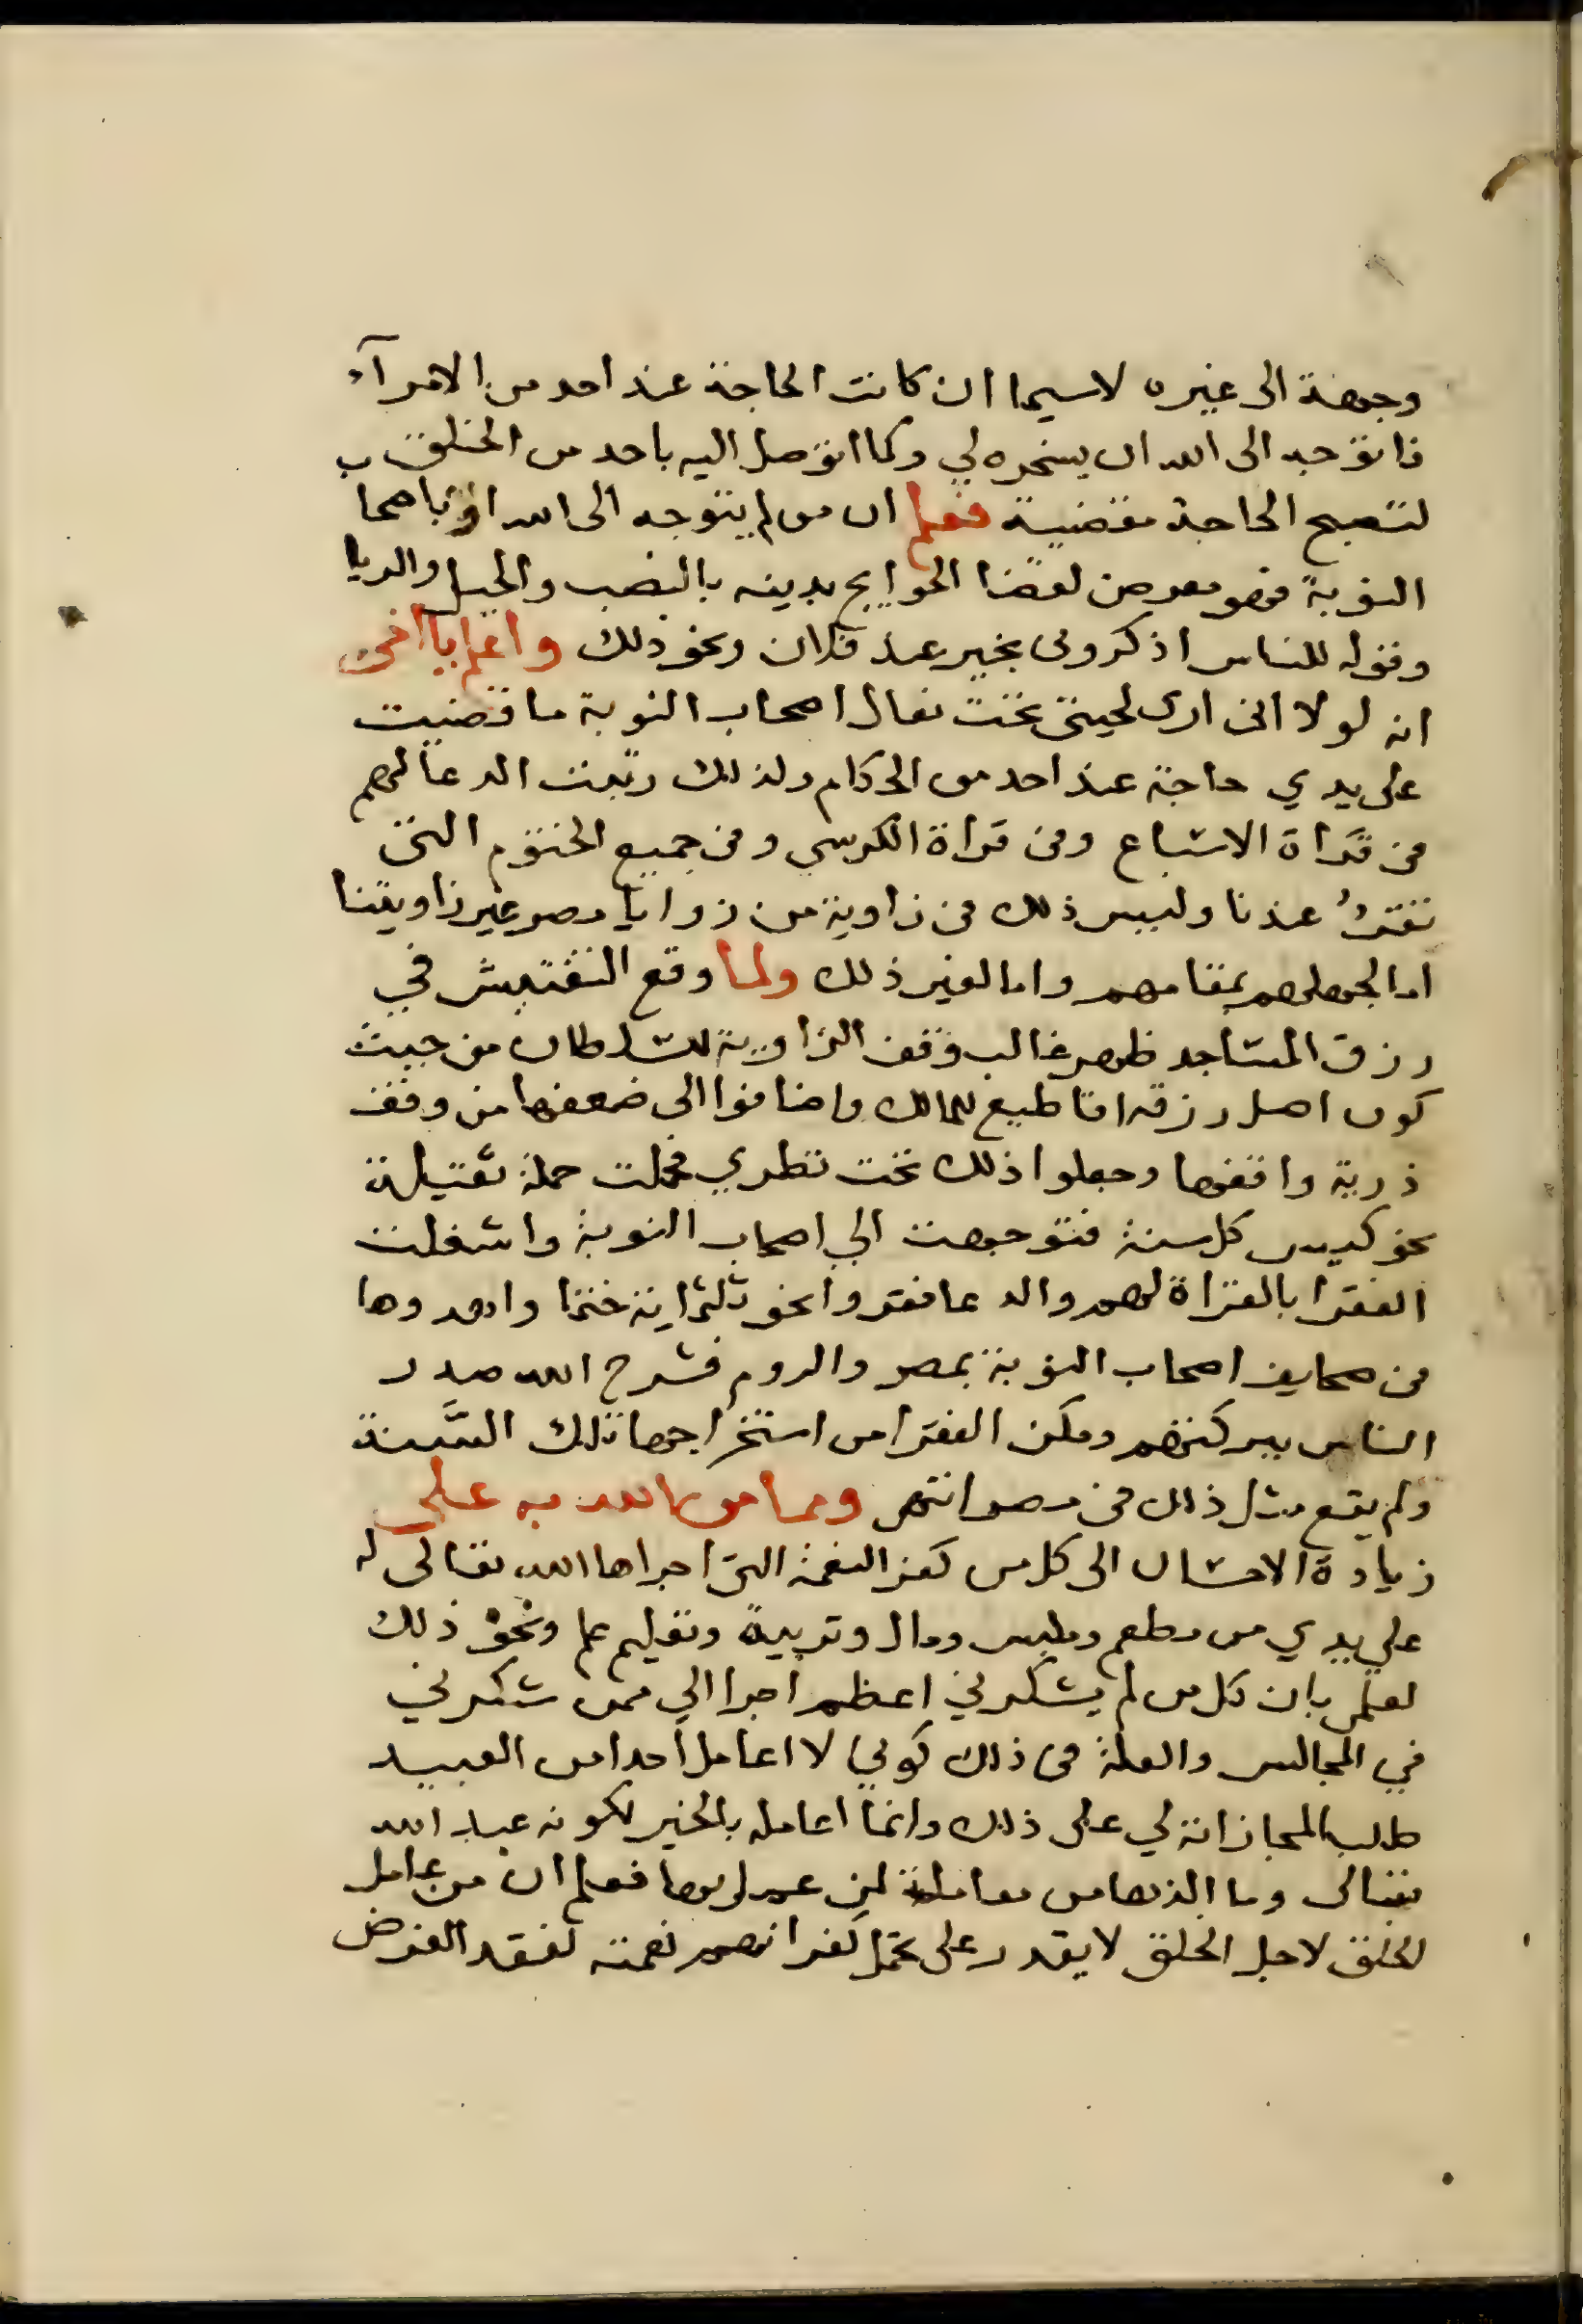 وجهة الى غيره لاسيما ان كانت الحاجة عند احد من الامرآء
فاتوجه الى الله ان يسخره لي وكما اتوصل اليه باحد من الخلق
لتصبح الحاجة مقضية فعلم ان من لم يتوجه الى الله او باصحاب
النوبة فهو معرض لقضا الحوايج بدينه بالنصب والحيل والريا
وقوله للناس اذكروني بخير عند فلان ونحو ذلك واعلم يا اخي
انه لولا انى ارى لحيتى تحت نعال اصحاب النوبة ما قضيت
على يدي حاجة عند احد من الحكام ولذلك رتبت الدعا لهم
في قراة الاسباع وفي قراة الكرسي وفي جميع الختوم التى
تقرأ عندنا وليس ذلك في زاوية من زوايا مصر غير زاويتنا
اما لجهلهم بمقامهم واما لغير ذلك ولما وقع التفتيش في
رزق المساجد ظهر غالب وقف الزاوية للسلطان من حيث
كون اصل رزقه اقاطيع للممالك واضافوا الى ضعفها من وقف
ذرية واقفها وجعلوا ذلك تحت نظري فحملت حملة ثقيلة
نحو كيس كل سنة فتوجهت الي اصحاب النوبة واشغلت
الفقرا بالقراة لهم والدعا فقروا نحو ثلثماية ختمة واهدوها
في صحايف اصحاب النوبة بمصر والروم فشرح الله صدر
الناس ببركتهم ومكن الفقرا من استخراجها تلك السنة
ولم يقع مثل ذلك في مصر انتهى ومما من الله به على
زيادة الاحسان الى كل من كفر النعمة التى اجراها الله تعالى له
علي يدي من مطعم وملبس ومال وتربية وتعليم علم ونحو ذلك
لعلمي بان كل من لم يشكرني اعظم اجرا الي ممن شكرني
في المجالس والعلة في ذلك كوني لا اعامل احدا من العبيد
طلب المجازاته لي على ذلك وانما اعامله بالخير لكونه عبد الله
تعالى وما الذها من معاملة لمن عمل بها فعلم ان من عامل
الخلق لاجل الخلق لا يقدر على تحمل كفرانهم نعمته لفقد الغرض